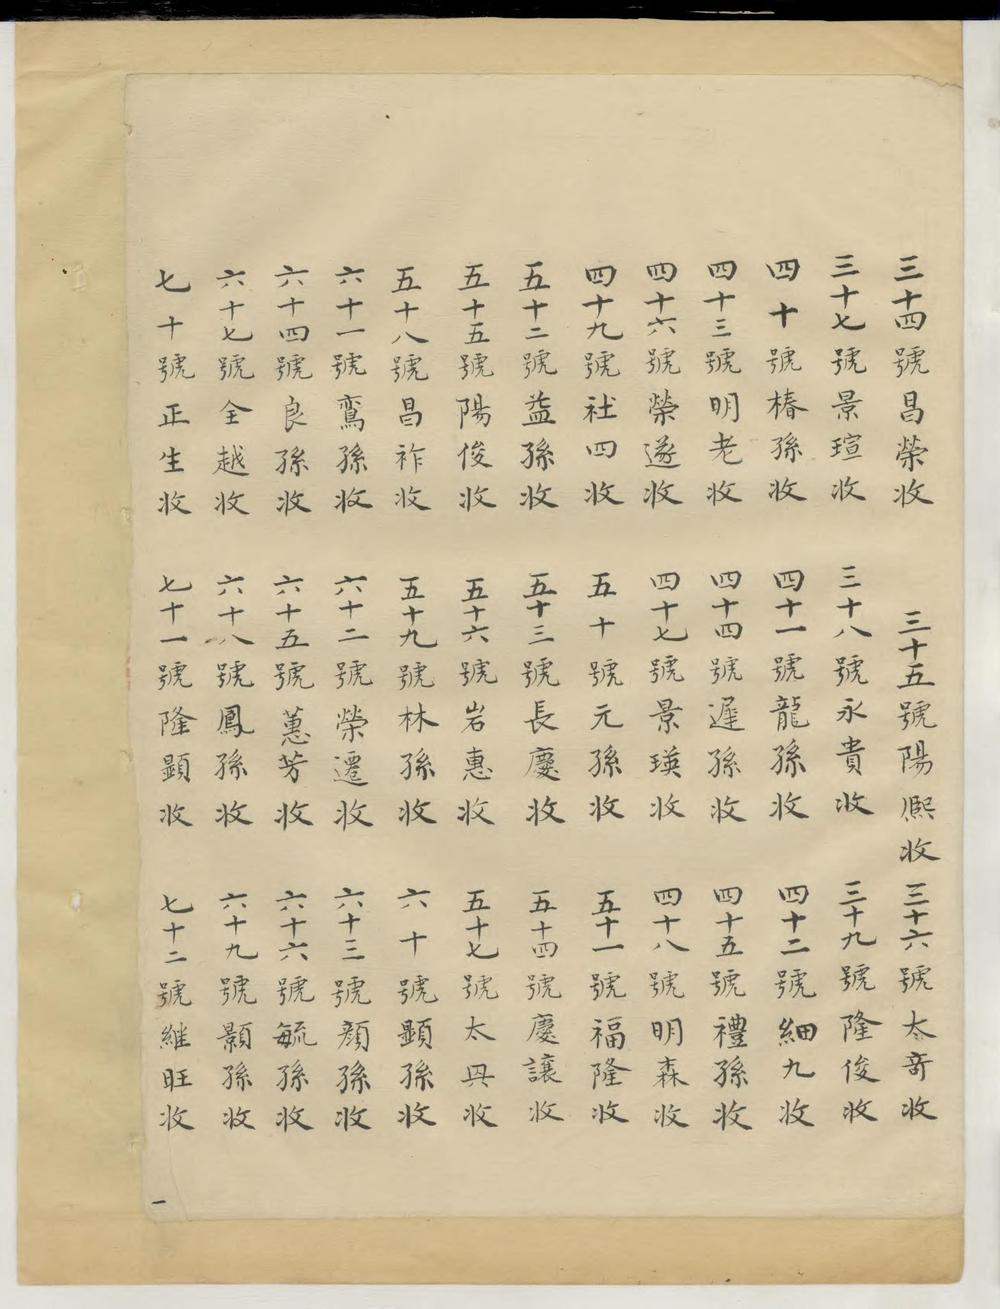 三十四號昌榮收
三十五號陽熈收
三十六號太奇收
三十七號景瑄收
三十八號永貴收
三十九號隆俊收
四十號椿孫收
四十一號龍孫收
四十二號細九收
四十三號明老收
四十四號遲孫收
四十五號禮孫收
四十六號榮遂收
四十七號景瑛收
四十八號明森收
四十九號社四收
五十號元孫收
五十一號福隆收
五十二號益孫收
五十三號長慶收
五十四號慶讓收
五十五號陽俊收
五十六號岩惠收
五十七號太㒷收
五十八號昌祚收
五十九號林孫收
六十號顕孫收
六十一號鸞孫收
六十二號榮遷收
六十三號顔孫收
六十四號良孫收
六十五號蕙芳收
六十六號毓孫收
六十七號全越收
六十八號鳳孫收
六十九號顥孫收
七十號正生收
七十一號隆顕收
七十二號維旺收